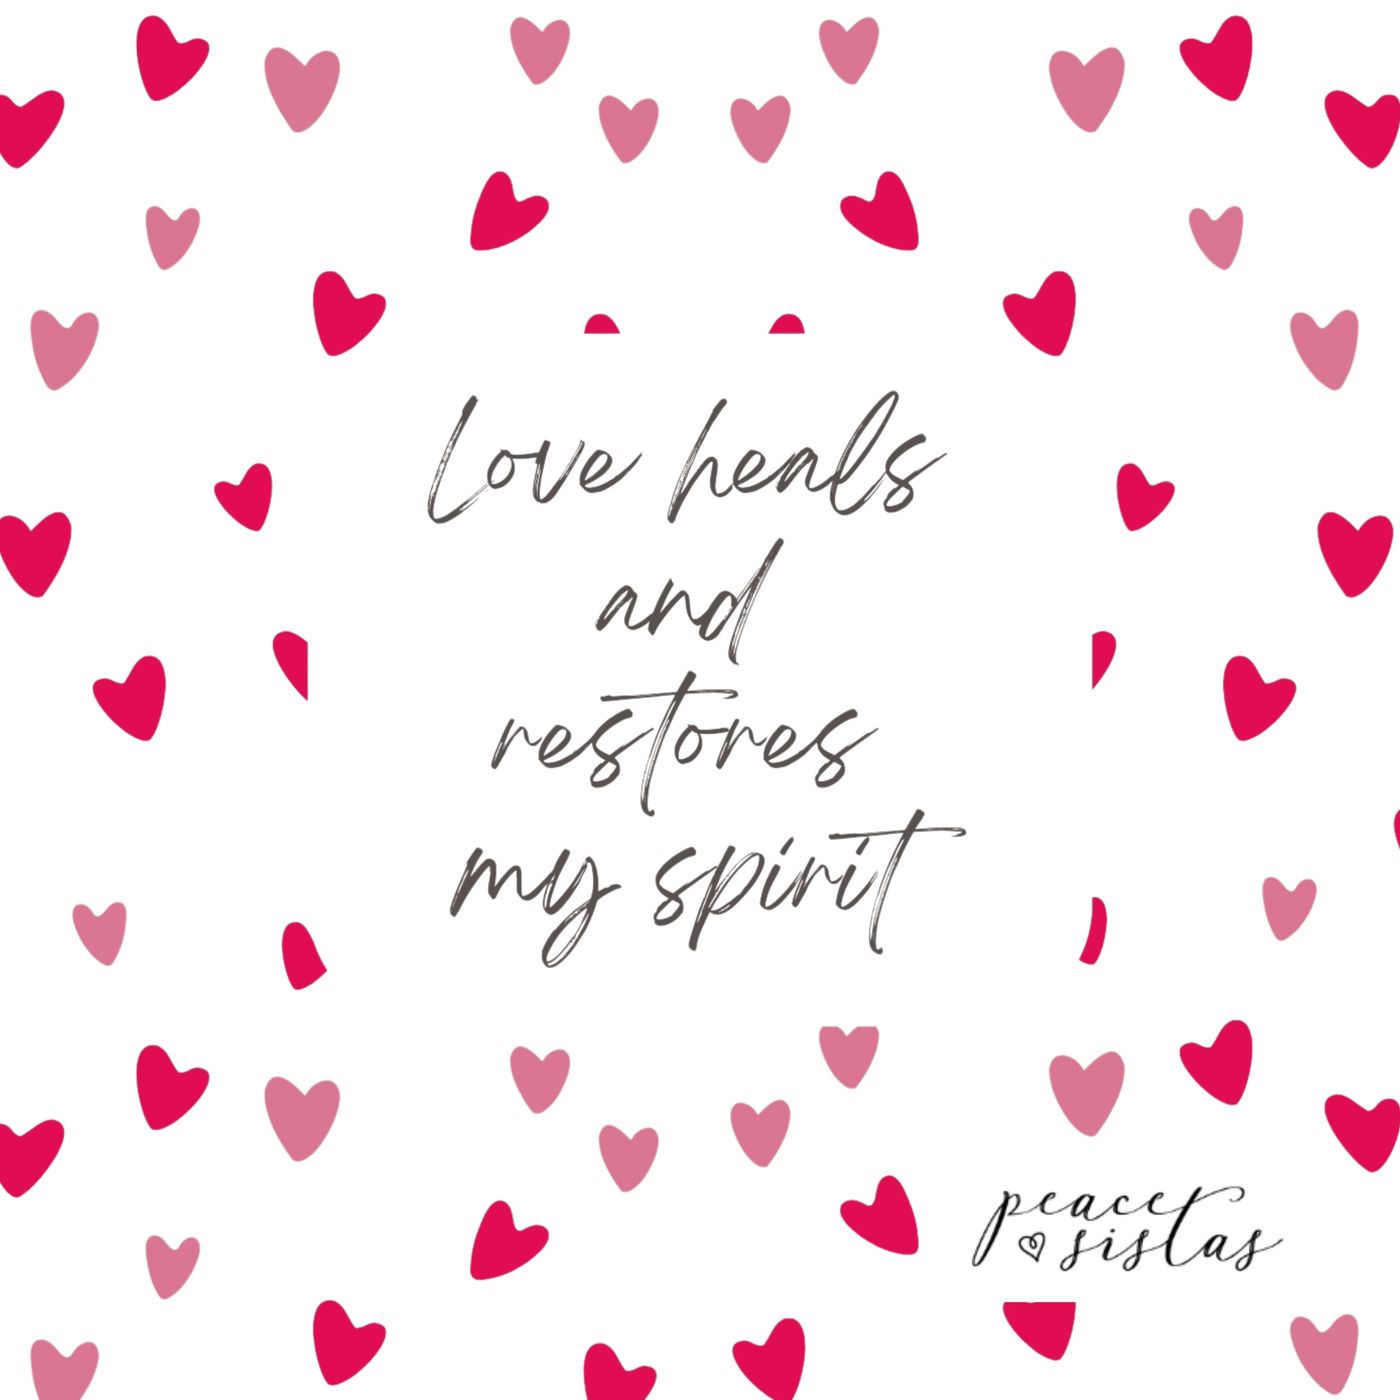 Love heals
and
restores
my spirit
peace
sistas